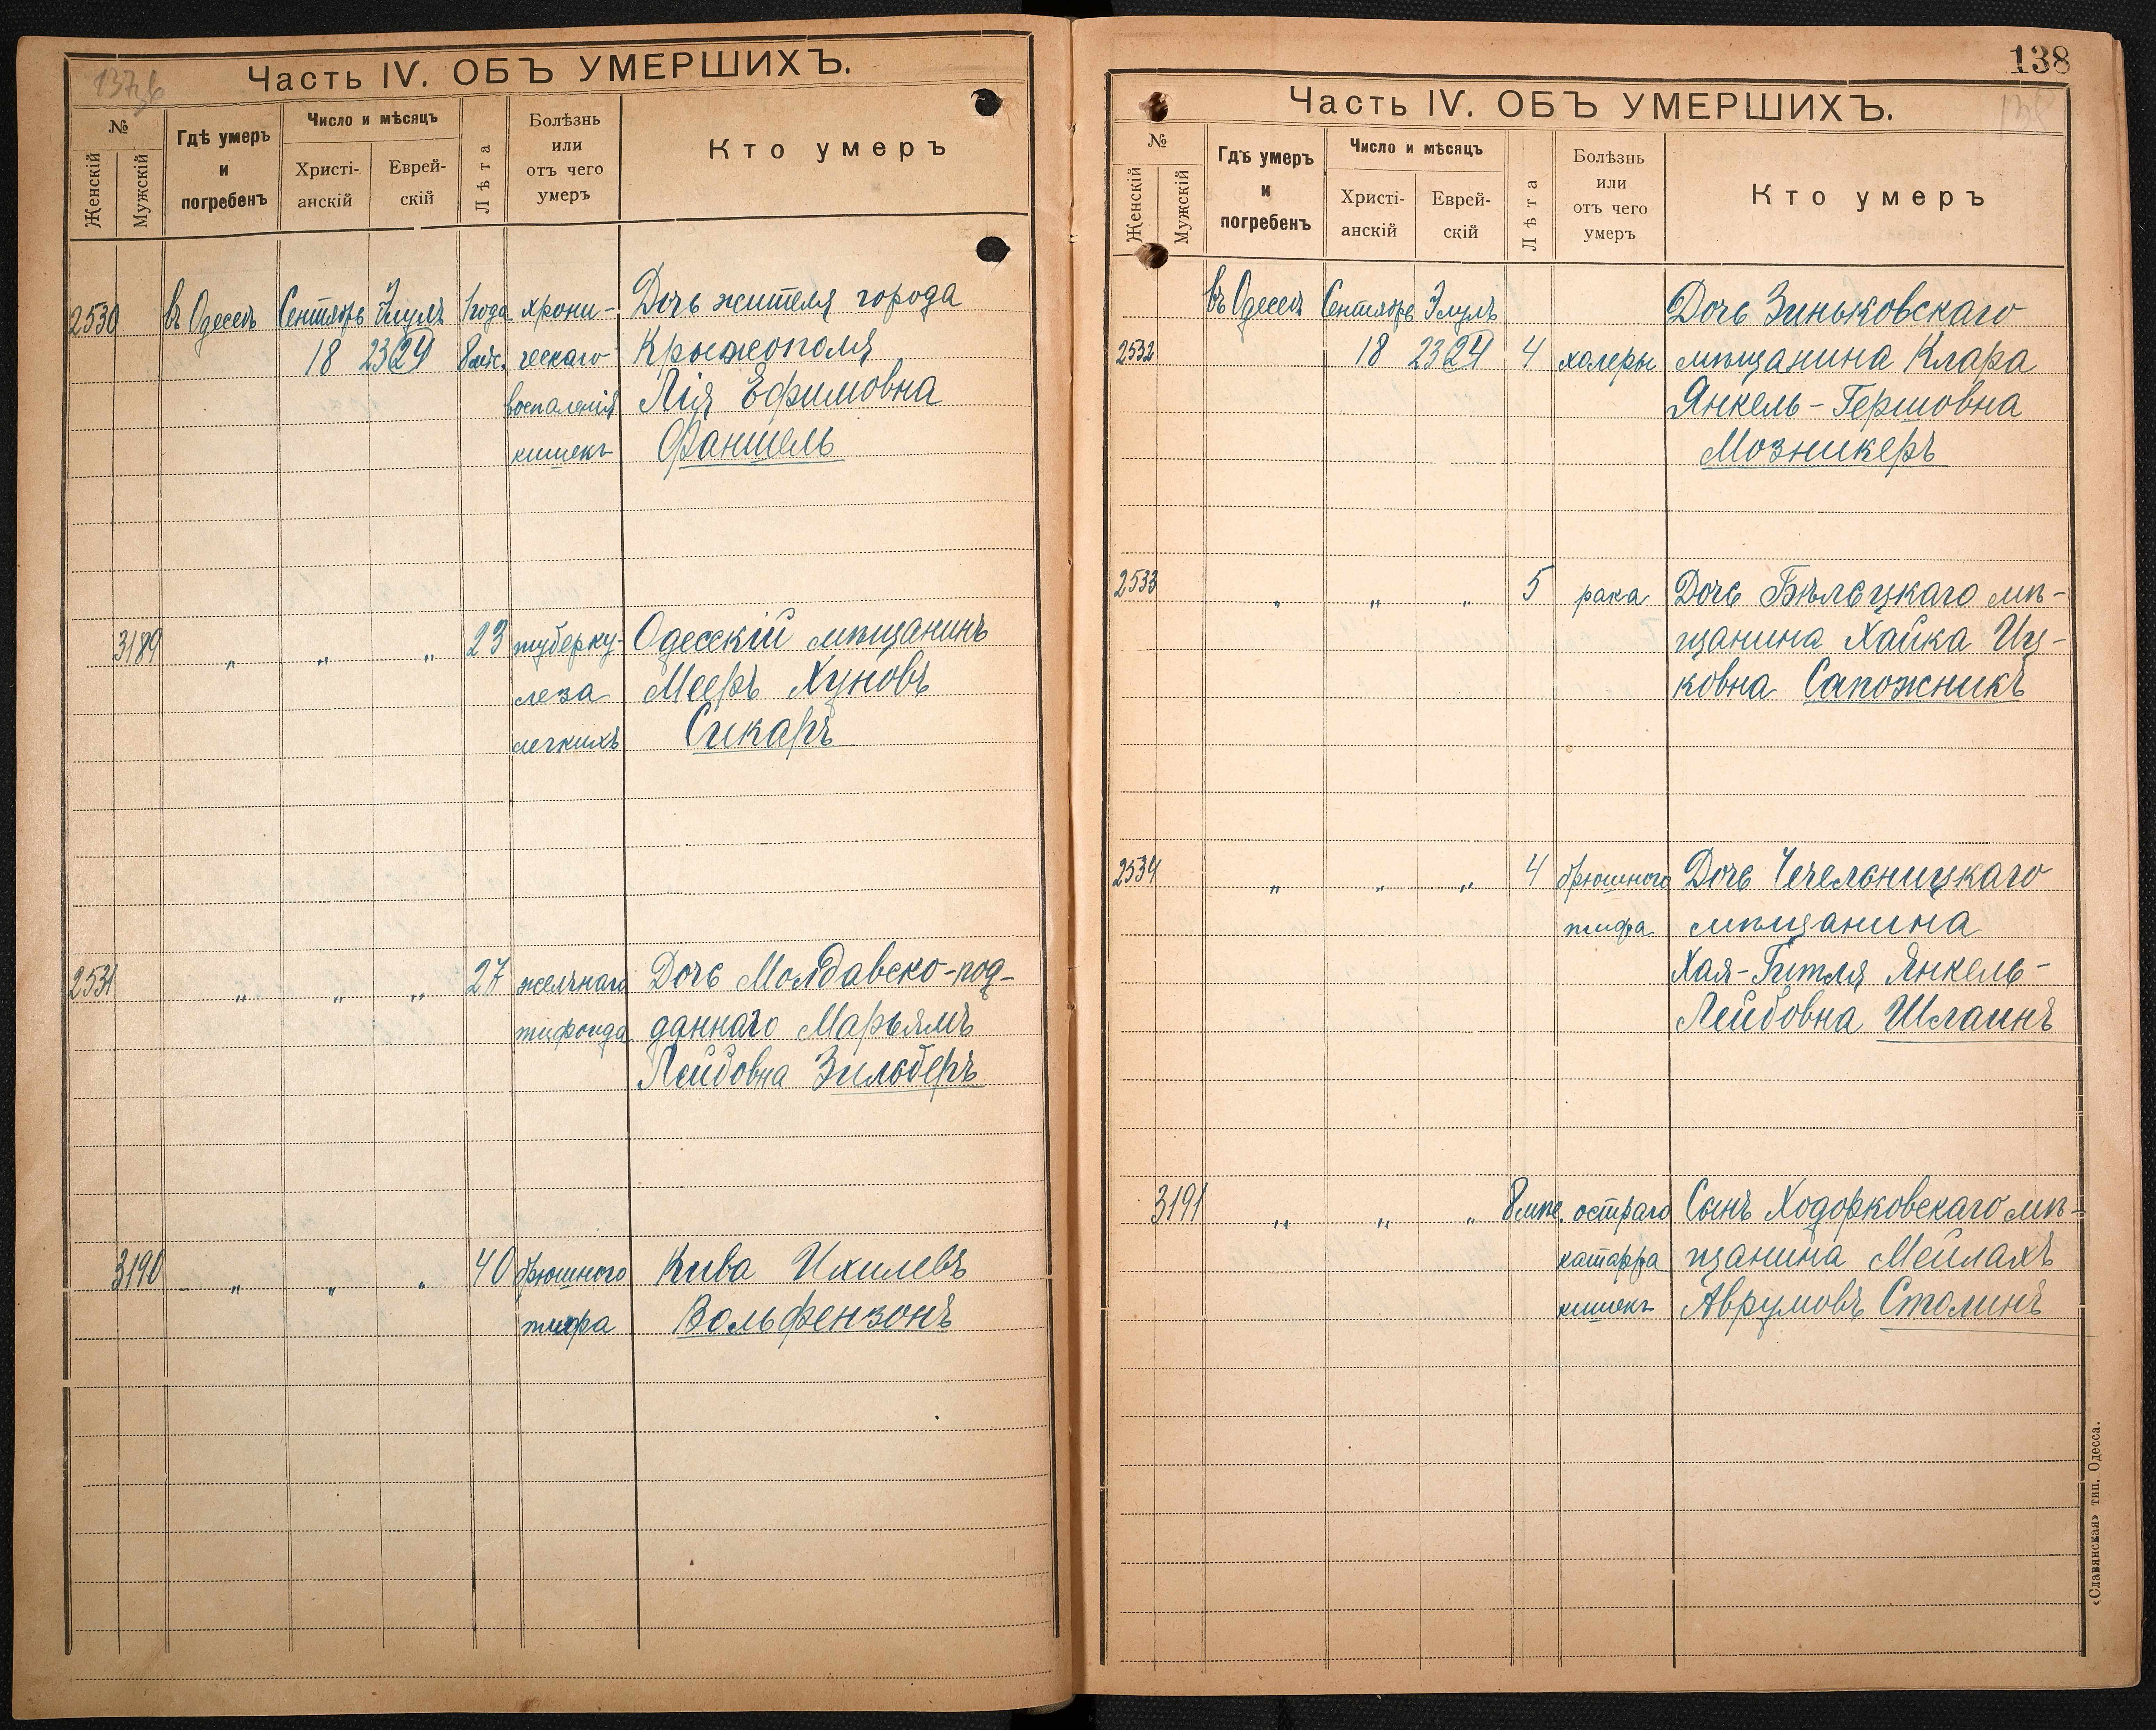 137об
Часть IV. ОБЪ УМЕРШИХЪ.
№
Женскій
Мужскій
Гдѣ умеръ
и
погребенъ
Число и мѣсяцъ
Христі-
анскій
Еврей-
скій
Лѣта
Болѣзнь
или
отъ чего
умеръ
Кто умеръ
2530 въ Одессѣ Сентябрь Элулъ 1 года хрони- Дочь жителя города
18 23/24 8 мѣс. ческаго Крыжополя
воспаленія Лія Ефимовна
кишекъ Фаншель
3189 " " " 23 туберку- Одесскій мѣщанинъ
леза Мееръ Хуновъ
легкихъ Сикаръ
2531 " " " 27 желчнаго Дочь Молдавско-под-
тифоида даннаго Марьямъ
Лейбовна Зильберъ
3190 " " " 40 брюшного Кива Ихилевъ
тифа Вольфензонъ
138
138
Часть IV. ОБЪ УМЕРШИХЪ.
№
Женскій
Мужскій
Гдѣ умеръ
и
погребенъ
Число и мѣсяцъ
Христі-
анскій
Еврей-
скій
Лѣта
Болѣзнь
или
отъ чего
умеръ
Кто умеръ
въ Одессѣ Сентябрь Элулъ Дочь Зиньковскаго
2532 18 23/24 4 холеры мѣщанина Клара
Янкель-Гершовна
Мозникеръ
2533 " " " 5 рака Дочь Бѣльцкаго мѣ-
щанина Хайка Иц-
ковна Сапожникъ
2534 " " " 4 брюшного Дочь Чечельницкаго
тифа мѣщанина
Хая-Гитля Янкель-
Лейбовна Шлаинъ
3191 " " " 8 мѣс. остраго Сынъ Ходорковскаго мѣ-
катарра щанина Мейлахъ
кишекъ Аврумовъ Столинъ
«Славянская» тип. Одесса.